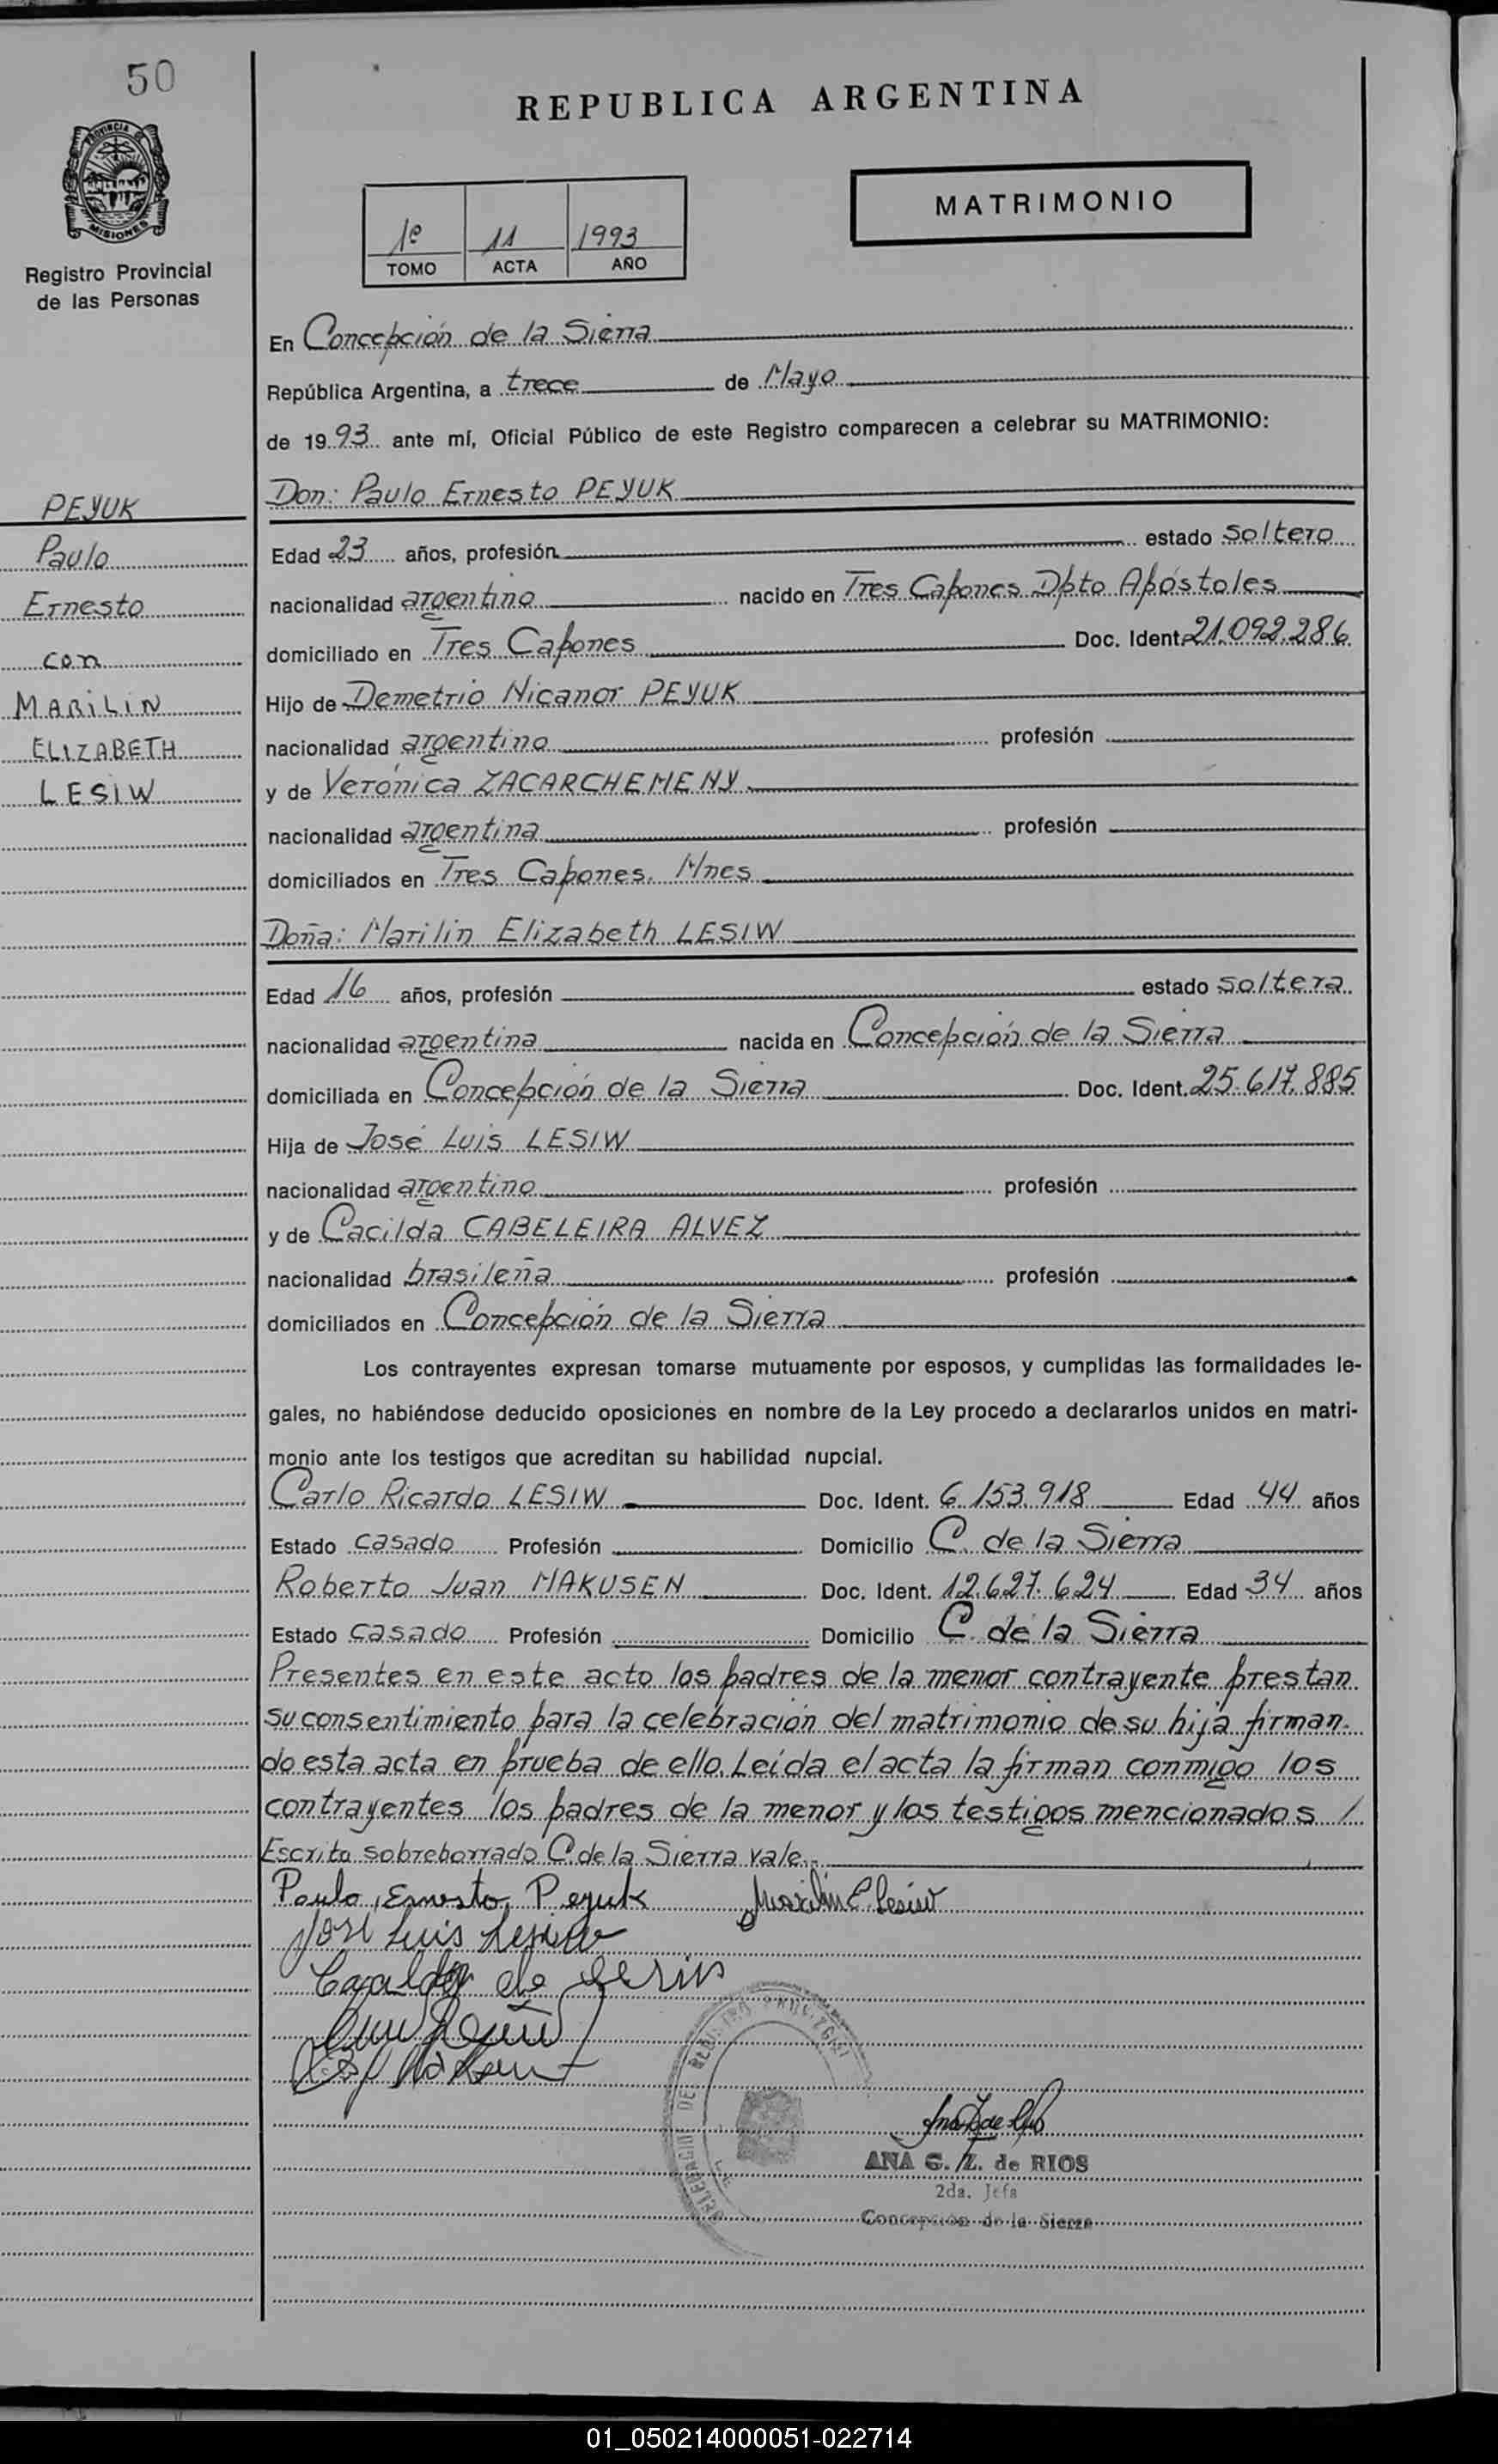 50
REPUBLICA ARGENTINA
PROVINCIA DE
MISIONES
Registro Provincial
de las Personas
MATRIMONIO
1º 11 1993
TOMO ACTA AÑO
En Concepción de la Sierra
República Argentina, a trece de Mayo
de 1993 ante mí, Oficial Público de este Registro comparecen a celebrar su MATRIMONIO:
PEYUK
Paulo
Ernesto
con
MARILIN
ELIZABETH
LESIW
Don: Paulo Ernesto PEYUK
Edad 23 años, profesión estado soltero
nacionalidad argentino nacido en Tres Capones Dpto Apóstoles
domiciliado en Tres Capones Doc. Ident. 21.092.286
Hijo de Demetrio Nicanor PEYUK
nacionalidad argentino profesión
y de Verónica ZACARCHEMENY
nacionalidad argentina profesión
domiciliados en Tres Capones. Mnes
Doña: Marilin Elizabeth LESIW
Edad 16 años, profesión estado soltera
nacionalidad argentina nacida en Concepción de la Sierra
domiciliada en Concepción de la Sierra Doc. Ident. 25.617.885
Hija de José Luis LESIW
nacionalidad argentino profesión
y de Cacilda CABELEIRA ALVEZ
nacionalidad brasileña profesión
domiciliados en Concepción de la Sierra
Los contrayentes expresan tomarse mutuamente por esposos, y cumplidas las formalidades le-
gales, no habiéndose deducido oposiciones en nombre de la Ley procedo a declararlos unidos en matri-
monio ante los testigos que acreditan su habilidad nupcial.
Carlo Ricardo LESIW Doc. Ident. 6.153.918 Edad 44 años
Estado casado Profesión Domicilio C. de la Sierra
Roberto Juan MAKUSEN Doc. Ident. 12.627.624 Edad 34 años
Estado casado Profesión Domicilio C. de la Sierra
Presentes en este acto los padres de la menor contrayente prestan
su consentimiento para la celebración del matrimonio de su hija firman-
do esta acta en prueba de ello. Leída el acta la firman conmigo los
contrayentes los padres de la menor y los testigos mencionados /
Escrito sobreborrado C. de la Sierra vale.
Paulo Ernesto Peyuk Marilin E. Lesiw
José Luis Lesiw
de
ANA G. Z. de RIOS
2da. Jefa
Concepción de la Sierra
01_050214000051-022714